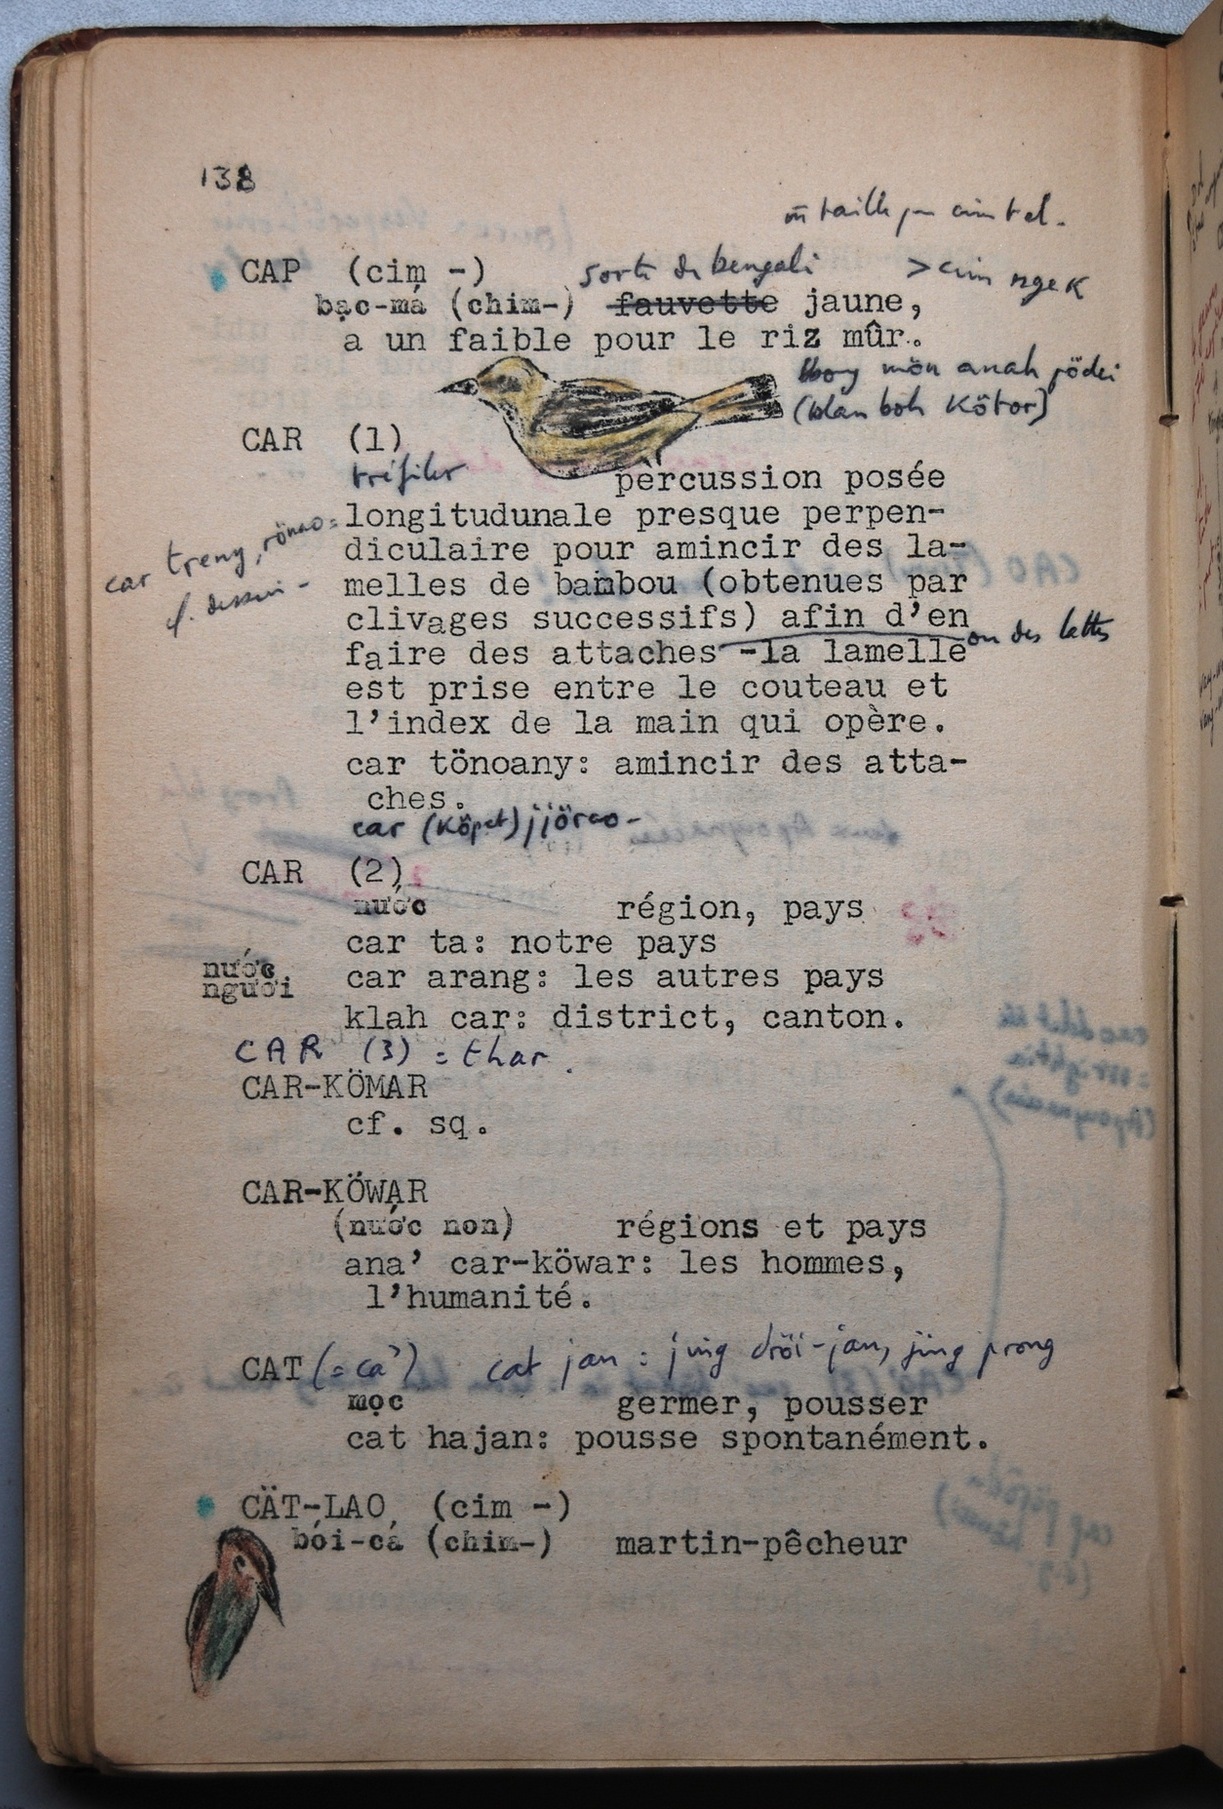 138
m̄ taille cim tel.
CAP (cim -) sorte de bengali > cim ngek
bạc-má (chim-) fauvette jaune,
a un faible pour le riz mûr.
mön anah pödei
(blan boh Kötor)
CAR (1)
tréfiler percussion posée
longitudunale presque perpen-
car treng, rönao =
diculaire pour amincir des la-
cf. dessin -
melles de bambou (obtenues par
clivages successifs) afin d'en
ou des lattes
faire des attaches -la lamelle
est prise entre le couteau et
l'index de la main qui opère.
car tönoany: amincir des atta-
ches.
car (Köpet) jjörao-
CAR (2)
nước région, pays
car ta: notre pays
nước
người
car arang: les autres pays
klah car: district, canton.
CAR (3) = thar.
CAR-KÖMAR
cf. sq.
CAR-KÖWAR
(nước non) régions et pays
ana' car-köwar: les hommes,
l'humanité.
CAT (= ca') cat jan : jing dröi-jan, jing prong
mọc germer, pousser
cat hajan: pousse spontanément.
CÄT-LAO (cim -)
bói-cá (chim-) martin-pêcheur